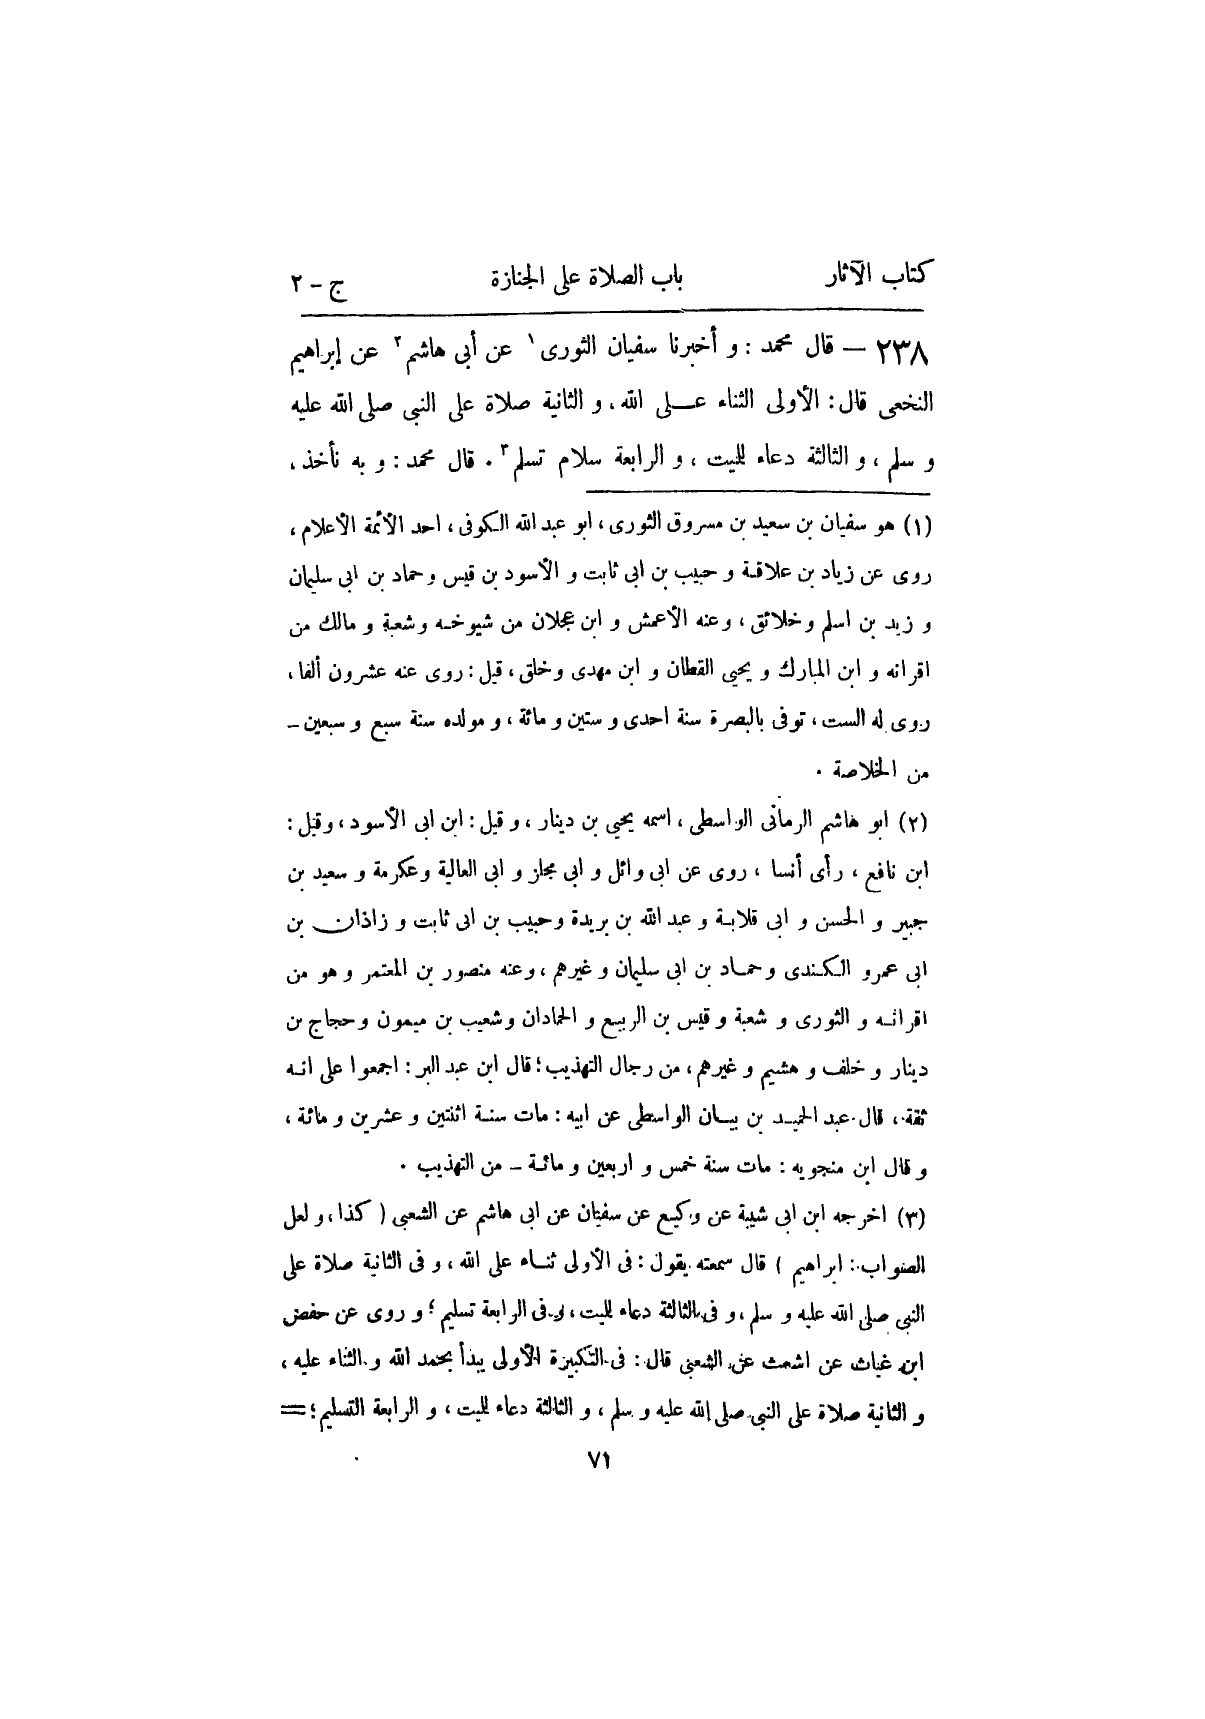 كتاب الآثار باب الصلاة على الجنازة ج - ٢
٢٣٨ — قال محمد : و أخبرنا سفيان الثورى ١ عن أبى هاشم ٢ عن إبراهيم
النخعى قال : الأولى الثناء عـــلى الله ، و الثانية صلاة على النبى صلى الله عليه
و سلم ، و الثالثة دعاء لليت ، و الرابعة سلام تسلم ٣ . قال محمد : و به نأخذ ،
(١) هو سفيان بن سعيد بن مسروق الثورى ، ابو عبد الله الكوفى ، احد الأئمة الأعلام ،
روى عن زياد بن علاقـة و حبيب بن ابى ثابت و الأسود بن قيس و حماد بن ابى سليمان
و زيد بن اسلم و خلائق ، وعنه الأعمش و ابن عجلان من شيوخـه و شعبة و مالك من
اقرانه و ابن المبارك و يحيى القطان و ابن مهدى و خلق ، قيل : روى عنه عشرون ألفا ،
روى له الست ، توفى بالبصرة سنة احدى و ستين و مائة ، و مولده سنة سبع و سبعين –
من الخلاصة .
(٢) ابو هاشم الرمانى الواسطى ، اسمه يحيى بن دينار ، و قيل : ابن ابى الأسود ، وقيل :
ابن نافع ، رأى أنسا ، روى عن ابى وائل و ابى مجلز و ابى العالية و عكرمة و سعيد بن
جبير و الحسن و ابى قلابـة و عبد الله بن بريدة و حبيب بن ابى ثابت و زاذان بن
ابى عمرو الكندى و حمـاد بن ابى سليمان و غيرهم ، وعنه منصور بن المعتمر و هو من
اقرانـه و الثورى و شعبة و قيس بن الربيع و الحمادان و شعيب بن ميمون و حجاج بن
دينار و خلف و هشيم و غيرهم ، من رجال التهذيب ؛ قال ابن عبد البر : اجمعوا على انـه
ثقة ، قال عبد الحميـد بن بيـان الواسطى عن ابيه : مات سنـة اثنتين و عشرين و مائة ،
و قال ابن منجويه : مات سنة خمس و اربعين و مائـة – من التهذيب .
(٣) اخرجه ابن ابى شيبة عن وكيع عن سفيان عن ابى هاشم عن الشعبى ( كذا ، و لعل
الصواب : ابراهيم ) قال سمعته يقول : فى الأولى ثنـاء على الله ، و فى الثانية صلاة على
النبى صلى الله عليه و سلم ، و فى الثالثة دعاء لليت ، و فى الرابعة تسليم ؛ و روى عن حفص
ابن غياث عن اشعث عن الشعبى قال : فى التكبيرة الأولى يبدأ بحمد الله و الثناء عليه ،
و الثانية صلاة على النبى صلى الله عليه و سلم ، و الثالثة دعاء لليت ، و الرابعة التسليم ؛ =
٧١